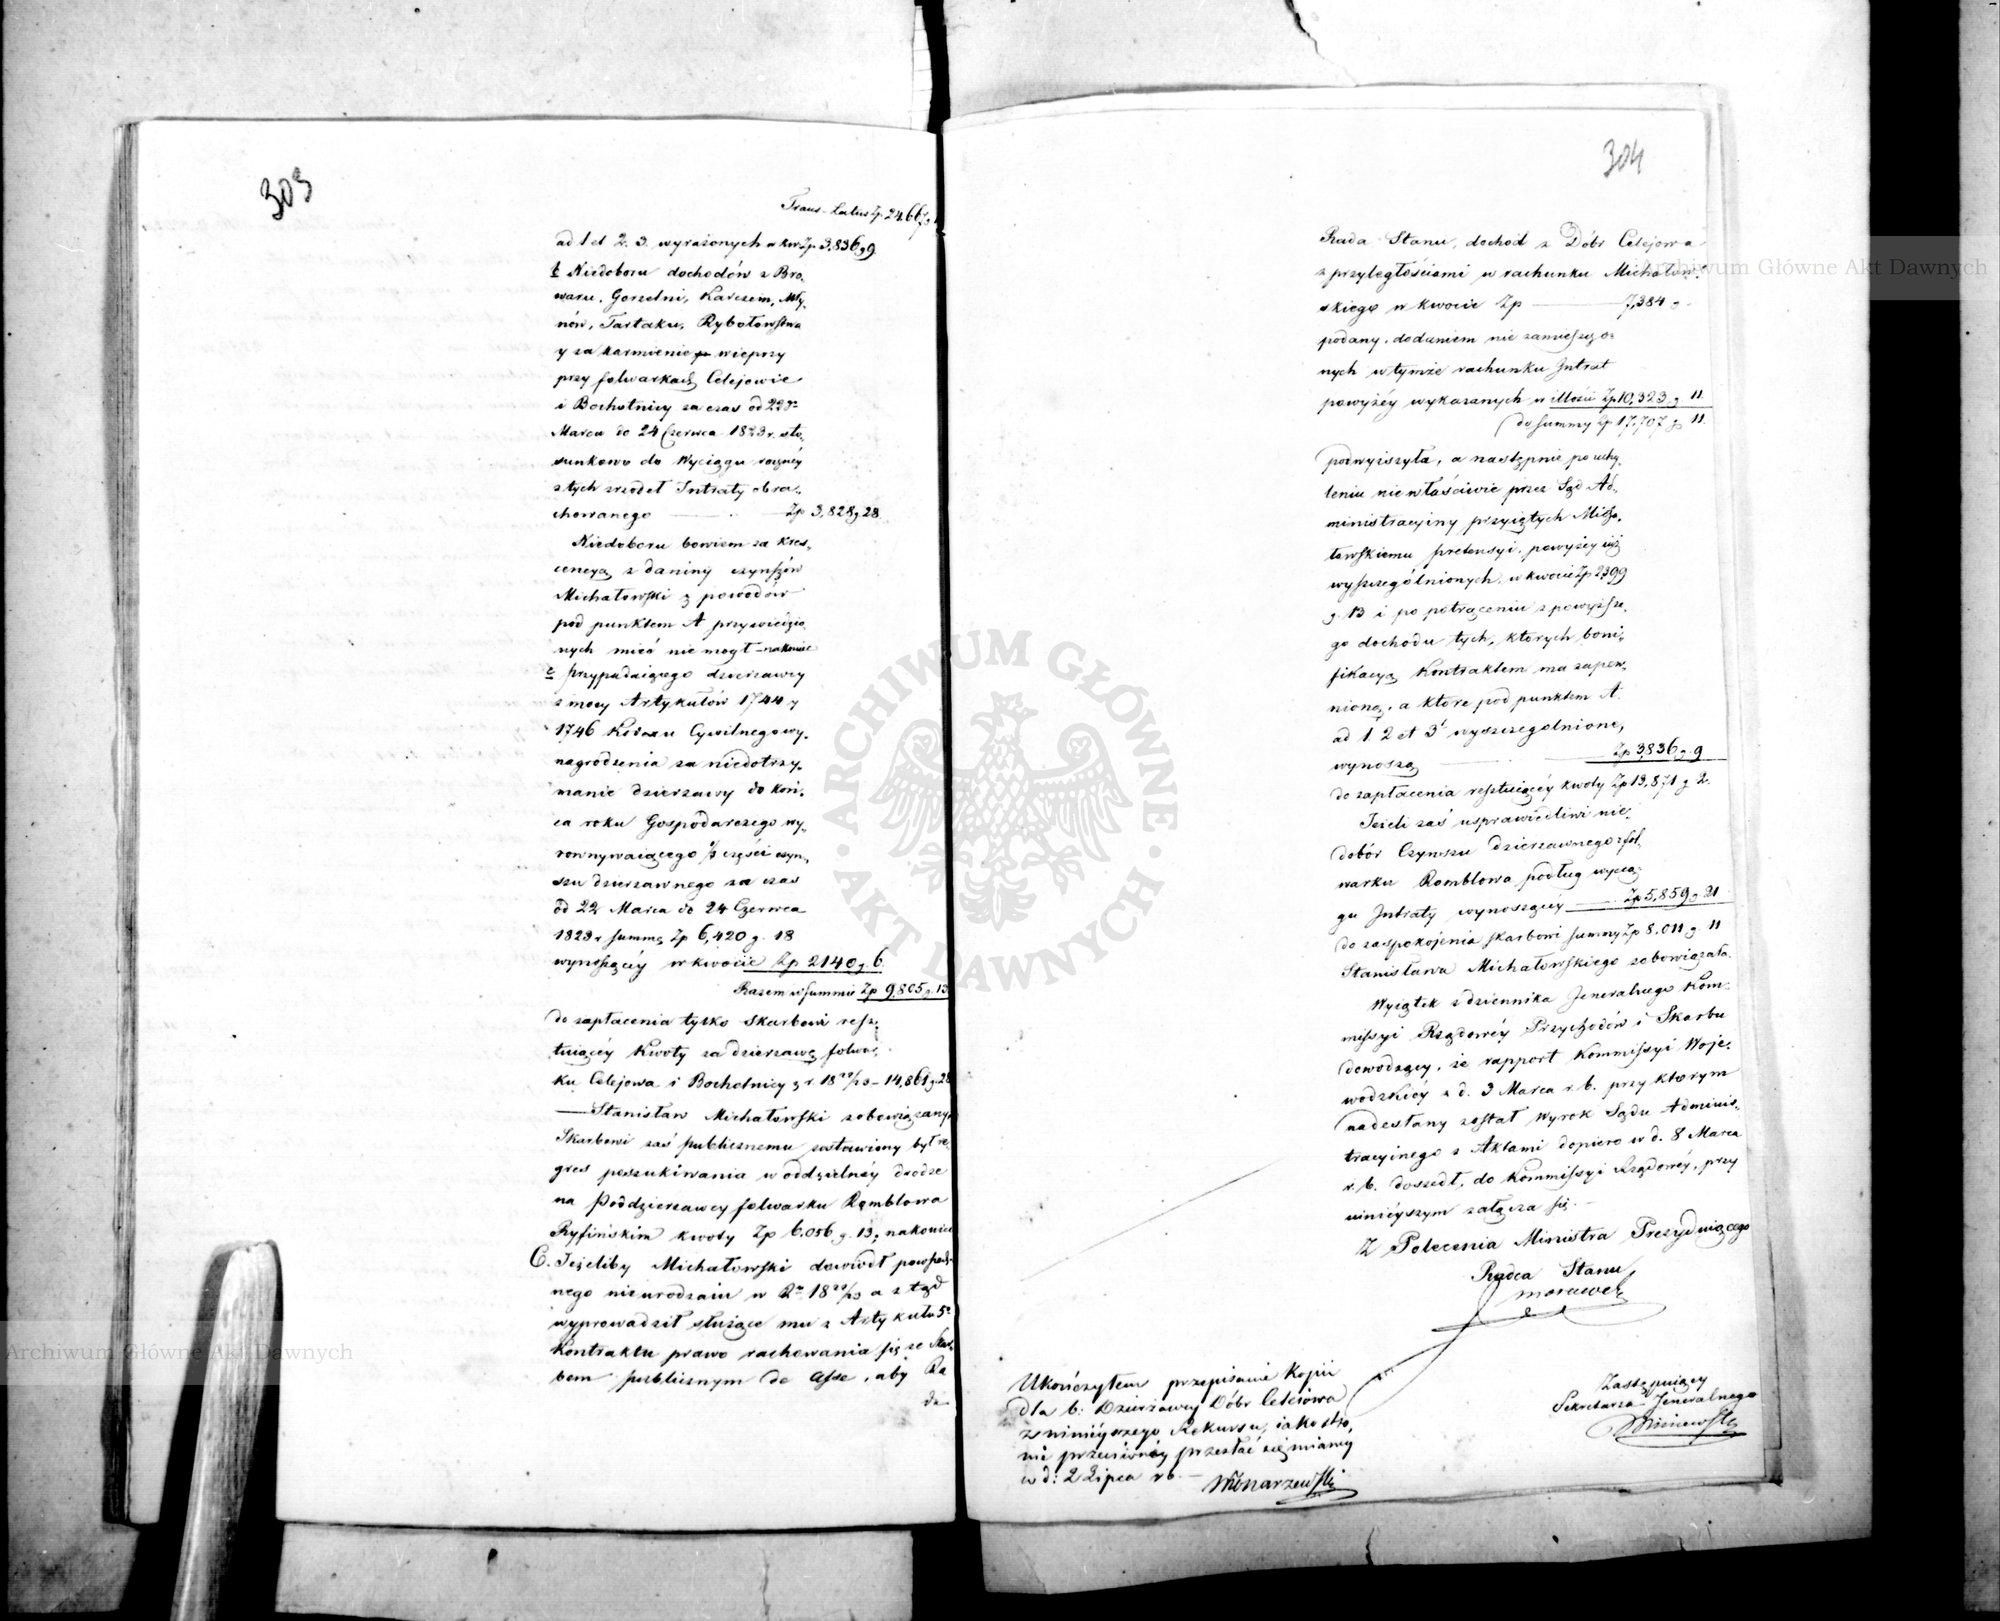 303
Trans-Latus Zp 24,667 g
ad 1 et 2. 3. wyrażonych w kw Zp 3,836 g 9
b Niedoboru dochodów z Bro,
waru, Gorzelni, Karczem, Mły,
nów, Tartaku, Rybołowstwa
y za karmienie wieprzy
przy folwarkach Celejowie
i Bochotnicy za czas od 22go
Marca do 24 Czerwca 1823 r. sto,
sunkowo do Wyciągu roczney
z tych źrzodeł Intraty obra,
chowanego Zp 3,828 g 28
Niedoboru bowiem za kres,
cencyą z daniny czynszów
Michałowski z powodów
pod punktem A przywiedzio,
nych mieć nie mogł - nakoniec
c przypadaiącego dzierzawcy
z mocy Artykułów 1744 y
1746 Kodexu Cywilnego wy,
nagrodzenia za niedotrzy,
manie dzierzawy do koń,
ca roku Gospodarczego wy,
rownywaiącego 1/3 części czyn,
szu dzierzawnego za czas
od 22 Marca do 24 Czerwca
1823 r summę Zp 6,420 g. 18
wynoszącey w kwocie Zp 2140 g 6.
Razem w summie Zp 9,805 g. 13
do zapłacenia tylko Skarbowi resz,
tuiącey Kwoty za dzierzawę folwar,
ku Celejowa i Bochotnicy z r. 1822/23 - 14,861 g. 28
Stanisław Michałowski zobowiązany
Skarbowi zaś publicznemu zostawiony był re,
gres poszukiwania w oddzielnéy drodze
na Poddzierzawcy folwarku Rąblowa
Ryfińskim kwoty Zp 6.056 g. 13; nakoniec
C. Jeżeliby Michałowski dowiódł powszech,
nego nieurodzaiu w Ru 1822/23 a ztąd
wyprowadził służące mu z Artykułu 5o
Kontraktu prawo rachowania się ze Skar,
bem publicznym de Asse, aby Ra
da
304
Rada Stanu, dochód z Dóbr Celejowa
z przyległościami w rachunku Michałow,
skiego w kwocie Zp 7,384 g -
podany, dodaniem nie zamieszczo,
nych w tymże rachunku Intrat
powyżéy wykazanych w illości Zp 10,323 g. 11
do summy Zp 17,707 g 11.
podwyższyła, a następnie po uchy,
leniu niewłaściwie przez Sąd Ad,
ministracyiny przyiętych Micha,
łowskiemu pretensyi, powyżey iuż
wyszczególnionych, w kwocie Zp 2399
g. 13 i po potrąceniu z powyższe,
go dochodu tych, których boni,
fikacyą Kontraktem ma zapew,
nioną, a które pod punktem A.
ad 1. 2 et 3 wyszczególnione,
wynoszą Zp 3,836 g. 9
do zapłacenia resztuiącéy kwoty Zp 13,871 g 2.
Jeżeli zaś usprawiedliwi nie,
dobór Czynszu dzierzawnego z fol,
warku Rąmblowa podług wycią,
gu Intraty wynoszący Zp 5,859 g. 21
do zaspokojenia skarbowi summy Zp 8,011 g. 11
Stanisława Michałowskiego zobowiązała.
Wyiątek z dziennika Jeneralnego Kom,
missyi Rządowéy Przychodów i Skarbu
dowodzący, że rapport Kommissyi Woje,
wodzkiéy z d. 3 Marca r. b. przy którym
nadesłany został Wyrok Sądu Adminis,
tracyinego z Aktami dopiero w d. 8 Marca
r. b. doszedł do Kommissyi Rządowéy, przy
ninieyszym załącza się. -
Z Polecenia Ministra Prezyduiącego
Radca Stanu
Morawe
Zastępuiący
Sekretarza Jeneralnego
Ukończyłem przepisanie Kopii
dla b: Dzierżawcy Dóbr Celejowa
z ninieyszego Rekursu, iako stro,
nie przeciwnéy przesłać się mianéy
w d: 2 Lipca r b. -
ARCHIWUM GŁÓWNE
AKT DAWNYCH
Archiwum Główne Akt Dawnych
Archiwum Główne Akt Dawnych